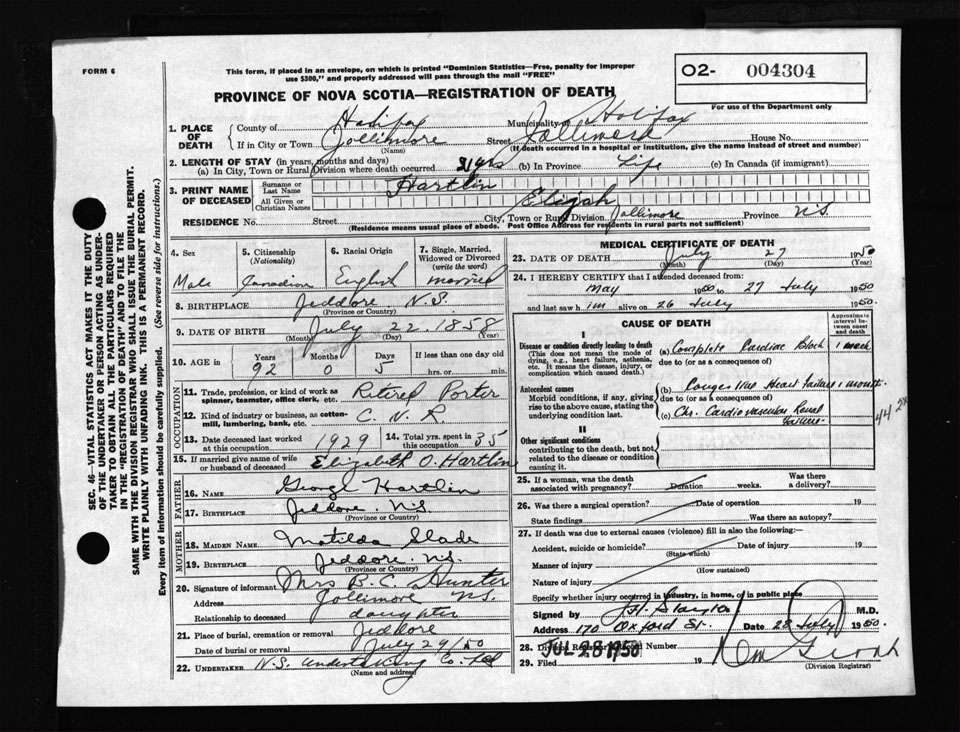 FORM 6
This form, if placed in an envelope, on which is printed "Dominion Statistics—Free, penalty for improper
use $300," and properly addressed will pass through the mail "FREE"
PROVINCE OF NOVA SCOTIA—REGISTRATION OF DEATH
O2- 004304
For use of the Department only
1. PLACE OF DEATH
County of Halifax Municipality of Halifax
If in City or Town Jollimore Street Jollimore House No.
(Name) (If death occurred in a hospital or institution, give the name instead of street and number)
2. LENGTH OF STAY (in years, months and days)
(a) In City, Town or Rural Division where death occurred 21 yrs (b) In Province Life (c) In Canada (if immigrant)
3. PRINT NAME OF DECEASED
Surname or Last Name Hartlin
All Given or Christian Names Elijah
RESIDENCE No. Street City, Town or Rural Division Jollimore Province N.S
(Residence means usual place of abode. Post Office Address for residents in rural parts not sufficient)
4. Sex Male
5. Citizenship (Nationality) Canadian
6. Racial Origin English
7. Single, Married, Widowed or Divorced (write the word) married
8. BIRTHPLACE Jeddore N.S.
(Province or Country)
9. DATE OF BIRTH July 22. 1858
(Month) (Day) (Year)
10. AGE in Years 92 Months 0 Days 5 If less than one day old hrs. or min.
OCCUPATION
11. Trade, profession, or kind of work as spinner, teamster, office clerk, etc. Retired Porter
12. Kind of industry or business, as cotton-mill, lumbering, bank, etc. C. N. R.
13. Date deceased last worked at this occupation 1929
14. Total yrs. spent in this occupation 35
15. If married give name of wife or husband of deceased Elizabeth O. Hartlin
FATHER
16. NAME George Hartlin
17. BIRTHPLACE Jeddore. N.S
(Province or Country)
MOTHER
18. MAIDEN NAME Matilda Slade
19. BIRTHPLACE Jeddore. N.S.
(Province or Country)
20. Signature of informant Mrs B. C. Hunter
Address Jollimore N.S.
Relationship to deceased daughter
21. Place of burial, cremation or removal Jeddore
Date of burial or removal July 29/50
22. UNDERTAKER N.S. Undertaking Co. Ltd
(Name and address)
MEDICAL CERTIFICATE OF DEATH
23. DATE OF DEATH July 27 1950
(Month) (Day) (Year)
24. I HEREBY CERTIFY that I attended deceased from:
May 1950 to 27 July 1950
and last saw him alive on 26 July 1950.
CAUSE OF DEATH
Approximate interval between onset and death
I
Disease or condition directly leading to death
(This does not mean the mode of dying, e.g., heart failure, asthenia, etc. It means the disease, injury, or complication which caused death.)
(a) Complete Cardiac Block 1 week
due to (or as a consequence of)
Antecedent causes
Morbid conditions, if any, giving rise to the above cause, stating the underlying condition last.
(b) Congestive Heart failure 1 month
due to (or as a consequence of)
(c) Chr. Cardiovascular Renal
II
Other significant conditions contributing to the death, but not related to the disease or condition causing it.
25. If a woman, was the death associated with pregnancy? Duration weeks. Was there a delivery?
26. Was there a surgical operation? Date of operation 19
State findings Was there an autopsy?
27. If death was due to external causes (violence) fill in also the following:—
Accident, suicide or homicide? Date of injury 19
(State which)
Manner of injury
(How sustained)
Nature of injury
Specify whether injury occurred in industry, in home, or in public place
Signed by M.D.
Address 170 Oxford St. Date 28 July 1950.
28. Division Registrar Record Number
29. Filed JUL 28 1950 19
(Division Registrar)
SEC. 46—VITAL STATISTICS ACT MAKES IT THE DUTY
OF THE UNDERTAKER OR PERSON ACTING AS UNDER-
TAKER TO OBTAIN ALL THE PARTICULARS REQUIRED
IN THE "REGISTRATION OF DEATH" AND TO FILE THE
SAME WITH THE DIVISION REGISTRAR WHO SHALL ISSUE THE BURIAL PERMIT.
WRITE PLAINLY WITH UNFADING INK. THIS IS A PERMANENT RECORD.
Every item of information should be carefully supplied. (See reverse side for instructions.)